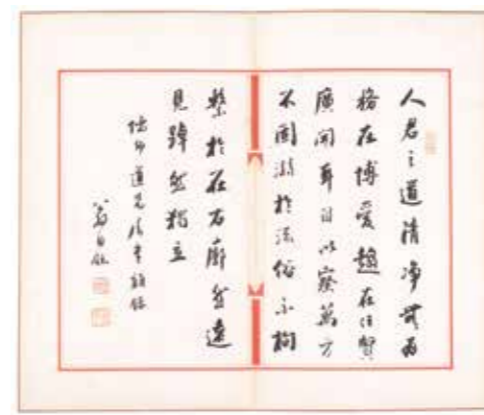 人君之道清净無為
務在博愛趨在任賢
廣開耳目以察萬方
不固溺於流俗不拘
繫於左右廓然遠
見踔然獨立
道兄